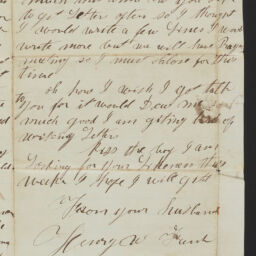 to get letter often so I thought
I would write a few lines I would
wrote more but we will have Prayer
meeting so I must close for this
time
oh how I wish I got talk
to you for it would Dow me
much good I am giting tired of
writing letter
Kiss the boy I am
looking for your likeness this
week I hope I will get it
From your husband
Henry W